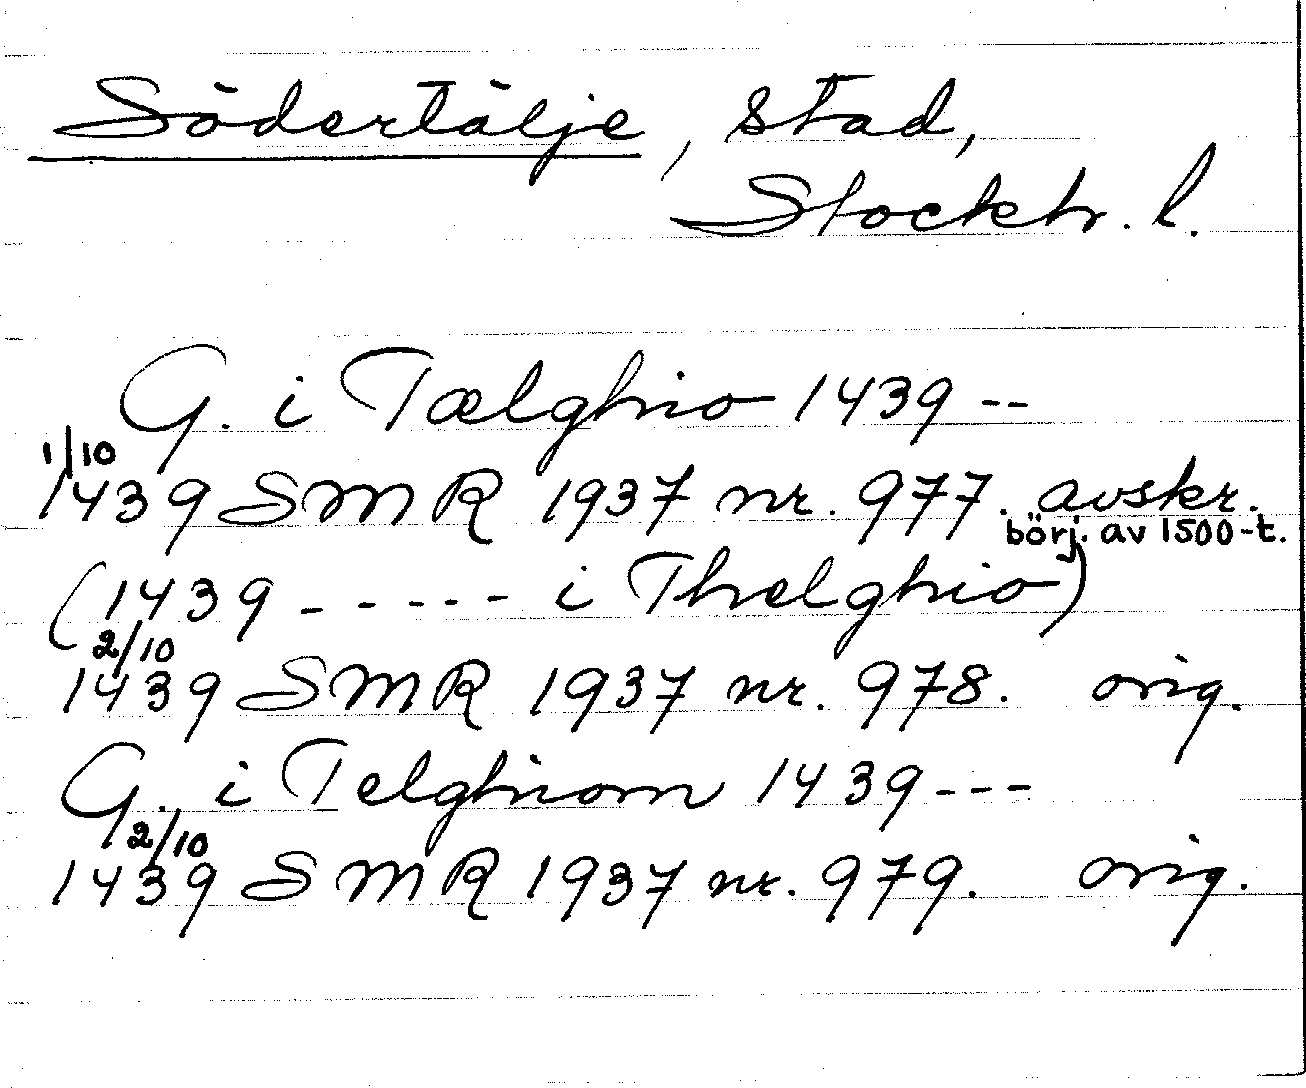 Södertälje, stad,
Stockh. l.
G. i Tælghio 1439 --
1/10
1439 SMR 1937 nr. 977. avskr.
börj. av 1500-t.
(1439 ----- i Thælghio)
2/10
1439 SMR 1937 nr. 978. orig.
G. i Telghiom 1439 ---
2/10
1439 SMR 1937 nr. 979. orig.